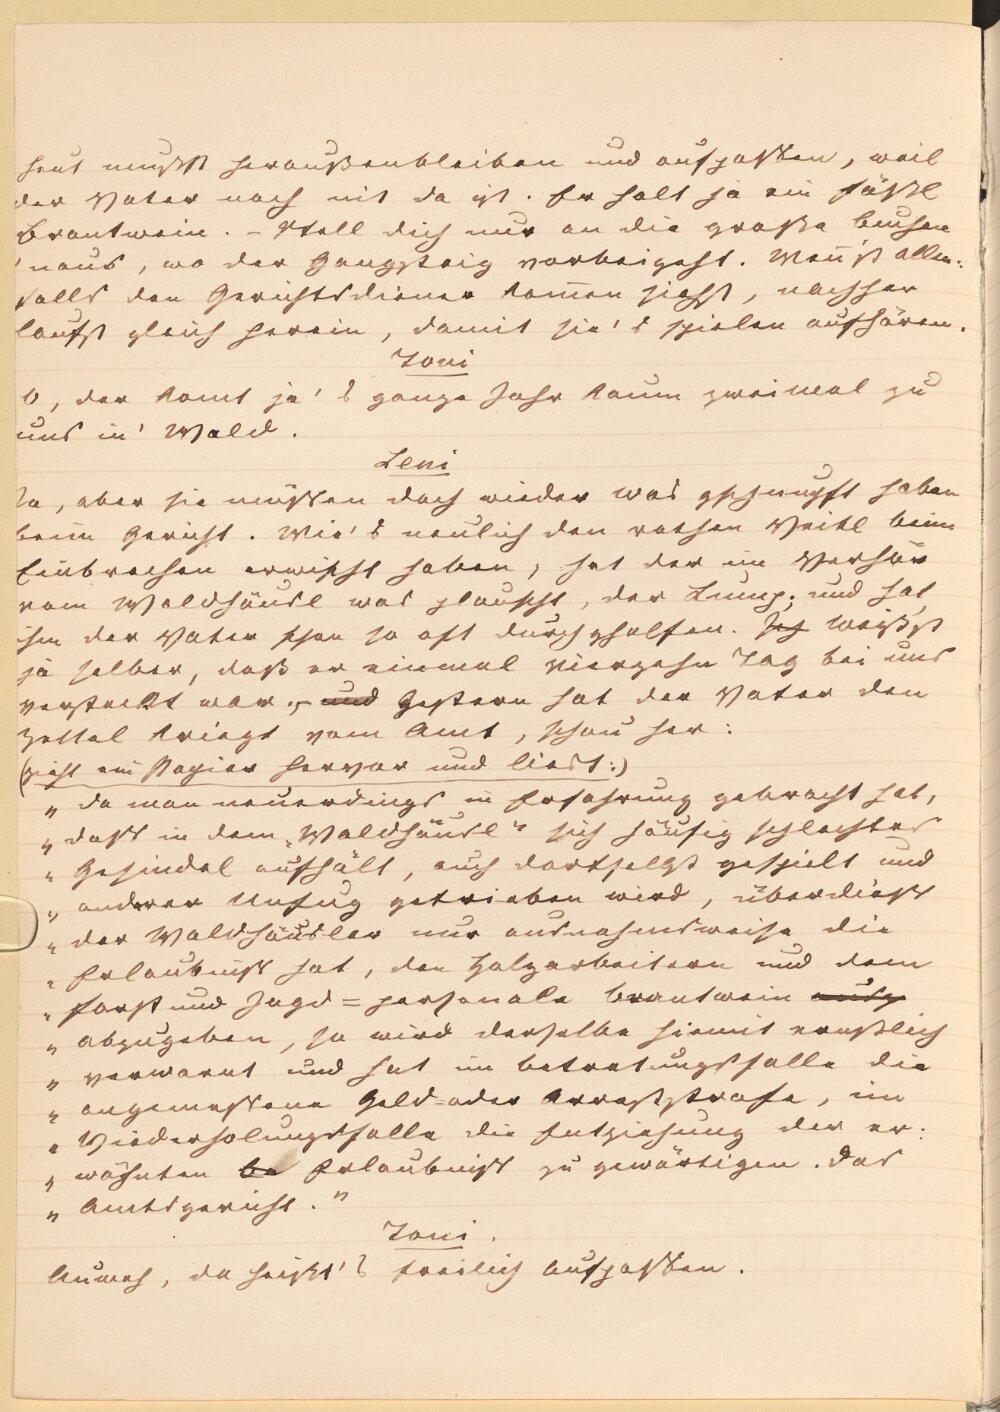 heut mußt heraußenbleiben und aufpassen, weil
der Vater noch nit da ist. Er holt ja ein Fäßl
Brantwein. – Stell dich nur an die große Buchen
'naus, wo der Gangsteig vorbeigeht. Wennst allen-
falls den Gerichtsdiener kommen siehst, nachher
laufst gleich herein, damit sie's spielen aufhören.
Toni
O, der komt ja's ganze Jahr kaum zweimal zu
uns in' Wald.
Leni
Ja, aber sie müssen doch wieder was gschnupft haben
beim Gericht. Wie's neulich den rothen Veitl beim
Einbrechen erwischt haben, hat der im Verhör
vom Waldhäusl was plauscht, der Lump; und hat
ihm der Vater schon so oft durchgholfen. Weißt
ja selber, daß er einmal vierzehn Tag bei uns
versteckt war. – und Gestern hat der Vater den
Zettel kriegt vom Amt, schau her:
(zieht ein Papier hervor und liest:)
„ da man neuerdings in Erfahrung gebracht hat,
„ dass in dem „Waldhäusl" sich häufig schlechtes
„ Gesindel aufhält, auch dortselbst gespielt und
„ anderer Unfug getrieben wird, überdiess
„ der Waldhäusler nur ausnahmsweise die
„ Erlaubniss hat, den Holzarbeitern und dem
„ Forst und Jagd = personale Brantwein
„ abzugeben, so wird derselbe hiemit ernstlich
„ verwarnt und hat im Betretungsfalle die
„ angemessene Geld-oder Arreststrafe, im
„ Wiederholungsfalle die Entziehung der er-
„ wähnten be Erlaubniss zu gewärtigen. Das
„ Amtsgericht."
Toni.
Auweh, da heißt's freilich aufpassen.